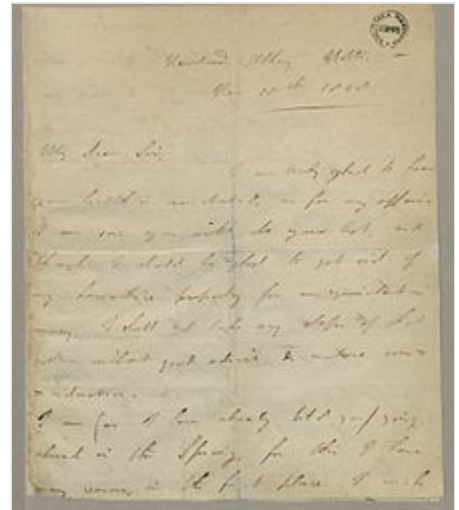 Newstead Abbey Notts. —
Nov 18th 1808
My dear Sir,
I am truly glad to hear
your health is reinstated, as for my affairs
I am sure you will do your best, and
though I should be glad to get rid of
my Lancashire property for an equivalent in
money, I shall not take any steps of that
nature without good advice & mature con=
=sideration. —
I am (as I have already told you) going
abroad in the Spring, for this I have
many reasons, in the first place I wish